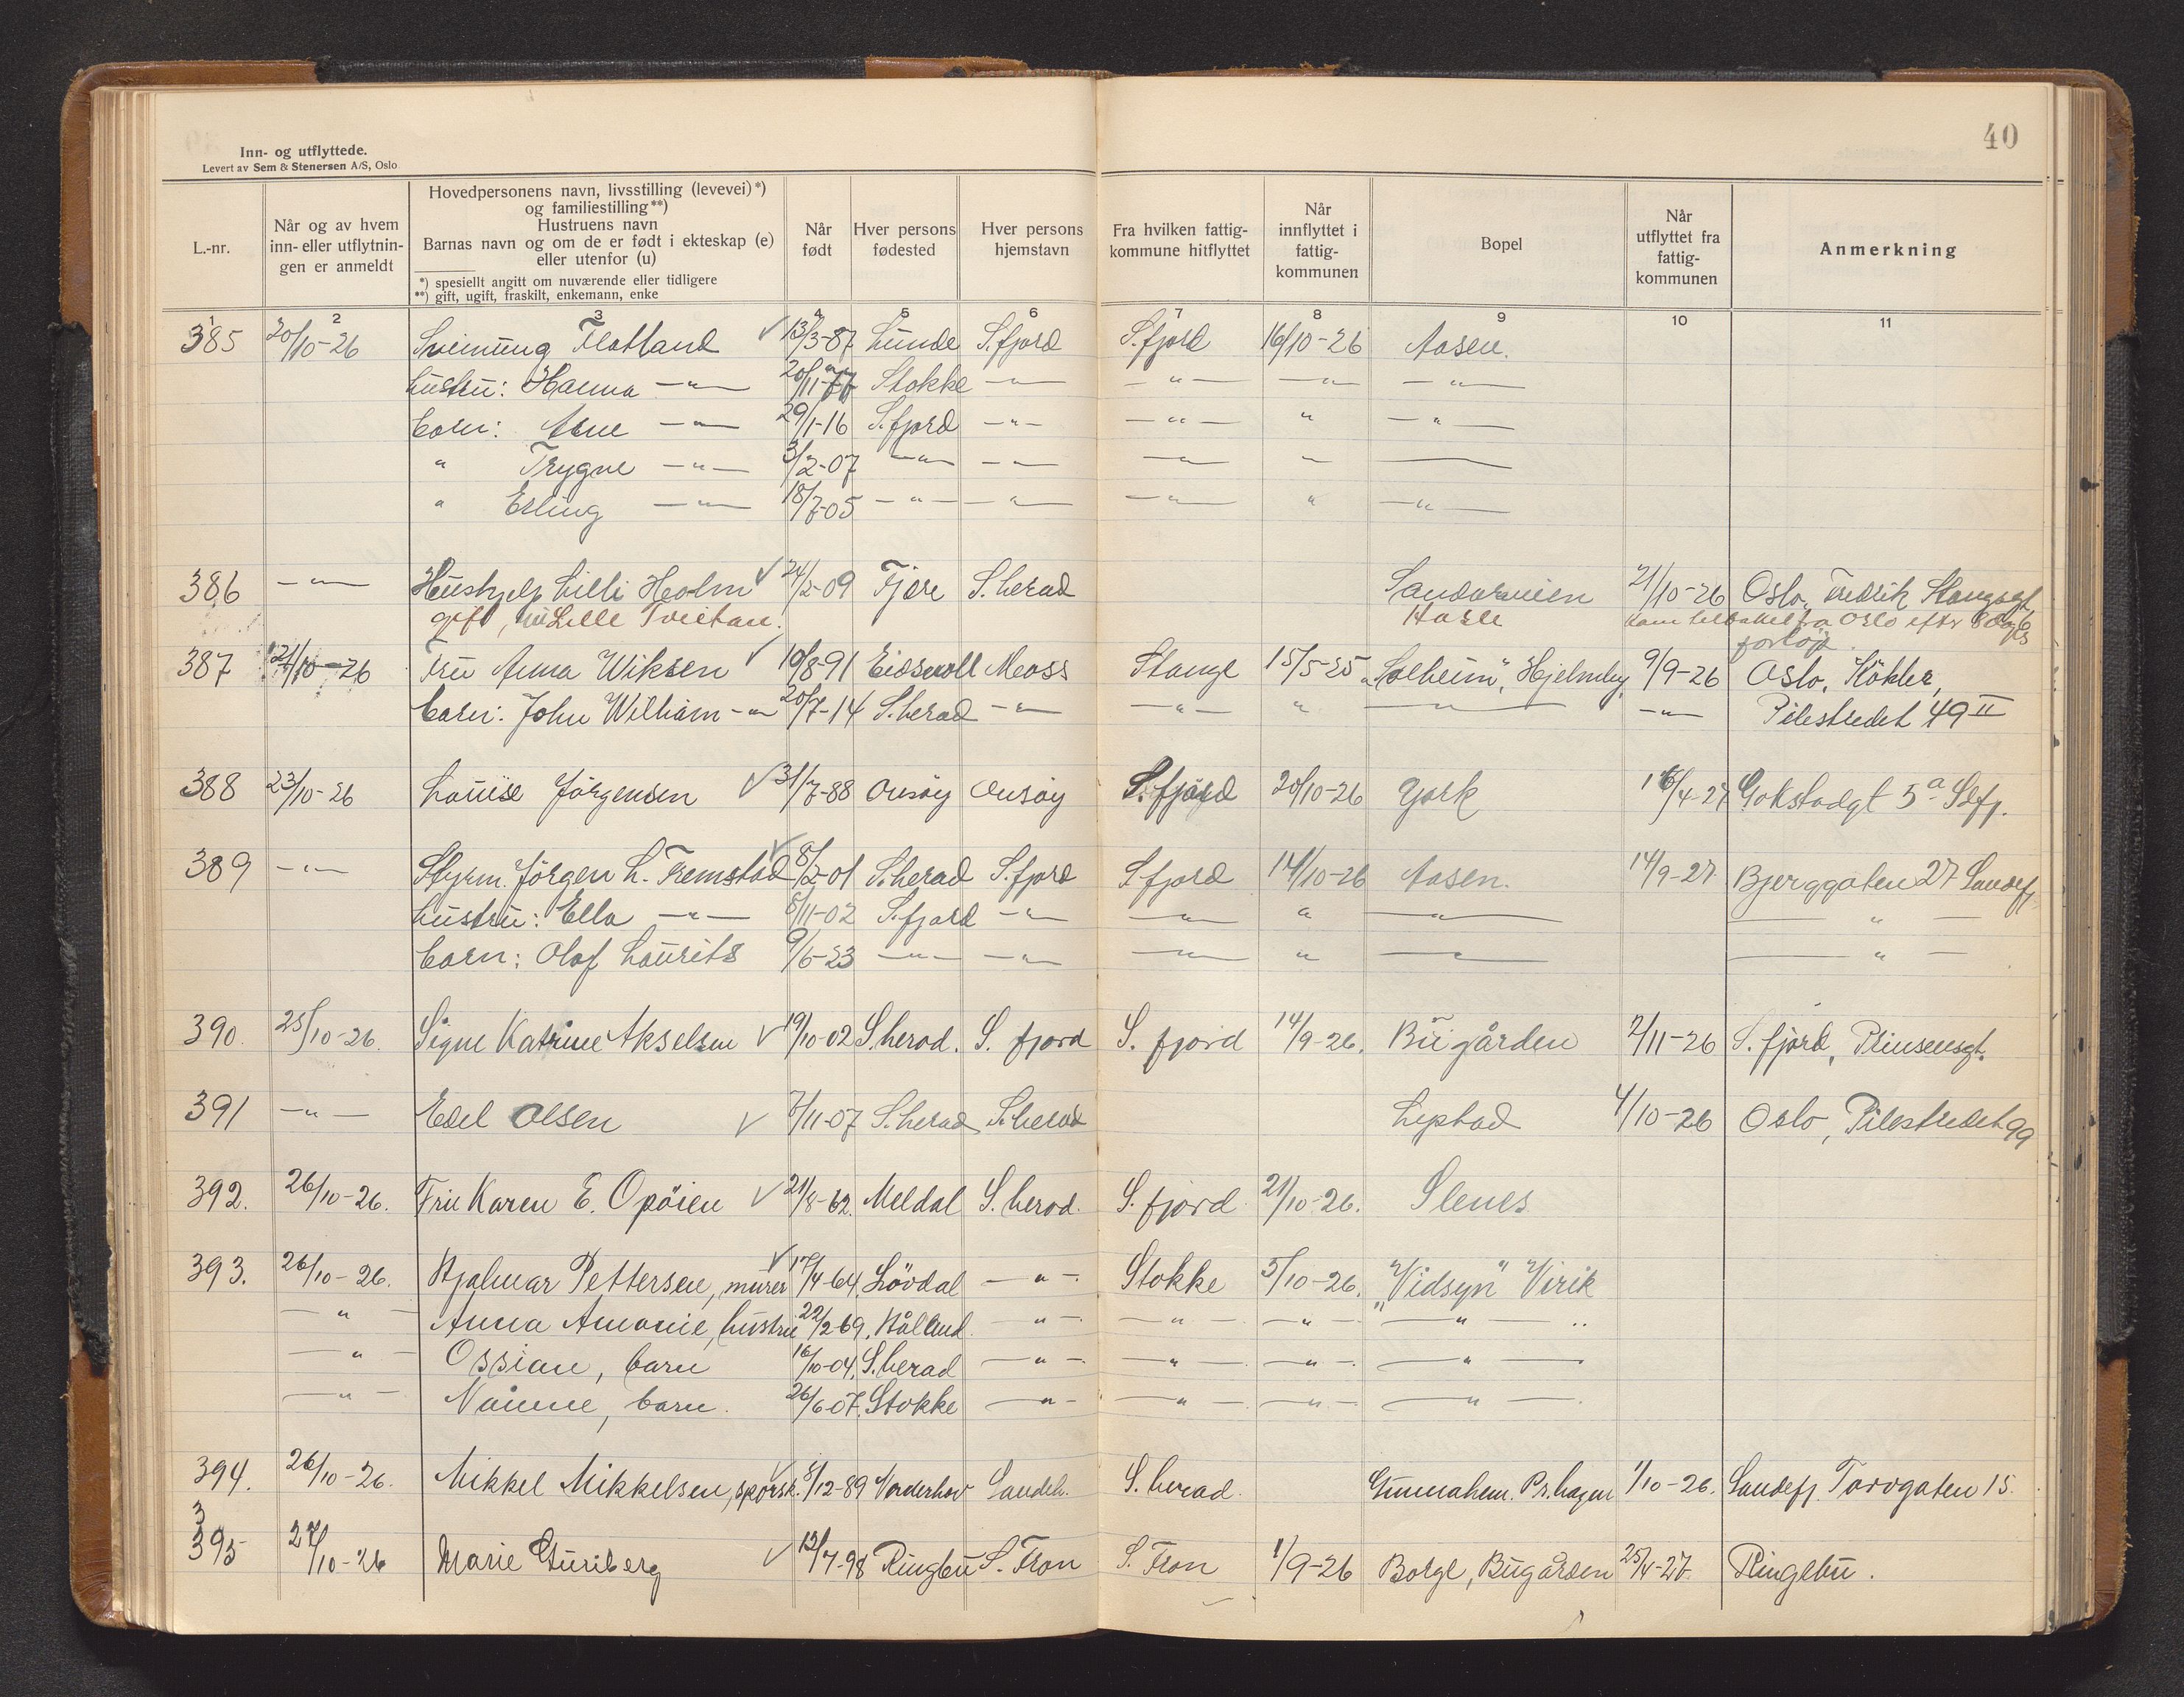 40
Inn- og utflyttede.
Levert av Sem & Stenersen A/S, Oslo
L.-nr.
Når og av hvem inn- eller utflytnin-gen er anmeldt
Hovedpersonens navn, livsstilling (levevei)*)
og familiestilling**)
Hustruens navn
Barnas navn og om de er født i ekteskap (e)
eller utenfor (u)
*) spesielt angitt om nuværende eller tidligere
**) gift, ugift, fraskilt, enkemann, enke
Når født
Hver persons fødested
Hver persons hjemstavn
Fra hvilken fattig-kommune hitflyttet
Når innflyttet i fattig-kommunen
Bopel
Når utflyttet fra fattig-kommunen
Anmerkning
1 2 3 4 5 6 7 8 9 10 11
385 20/10-26 Sveinung Flatland 13/3-87 Lunde S.fjord S.fjord 16/10-26 Aasen.
hustru: Hanna —"— 20/11-77 Stokke —"— —"— —"— —"—
barn: Arne —"— 29/1-16 S.fjord —"— —"— " —"—
" Trygve —"— 3/2-07 —"— —"— —"— " —
" Erling —"— 18/7-05 —"— —"— —"— " —"—
386 —"— Hushjelp Lilli Holm 24/2-09 Fjære S.herad Sandarveien 21/10-26 Oslo, Fredrik Stangsgt
gift, Lille Tveitan. Hasle Kam tilbake fra Oslo efter 8 dages
forløp.
387 21/10-26 Fru Anna Wiksen 10/8-91 Eidsvoll Moss Stange 15/5-25 "Solheim", Hjelmby 9/9-26 Oslo, Köhler,
barn: John William —"— 20/7-14 S.herad —"— —"— " —"— —"— Pilestredet 49 II
388 23/10-26 Louise Jörgensen 31/7-88 Onsöy Onsöy S.fjord 20/10-26 York 16/4-27 Gokstadgt 5a Sefj.
389 —"— Styrm. Jörgen L. Fremstad 8/2-01 S.herad S.fjord S.fjord 14/10-26 Aasen. 14/9-27 Bjerggaten 27 Sandefj.
hustru: Ella —"— 8/11-02 S.fjord —"— —"— " —"— —"—
barn: Olaf Laurits 9/6-23 —"— —"— —"— " —"— —"—
390. 25/10-26. Signe Katrine Akselsen 19/10-02 S.herad. S. fjord S. fjord 14/9-26. Bugården 2/11-26 S. fjord, Prinsensgt.
391 —"— Edel Olsen 7/11-07 S.herad S.herad Lystad 4/10-26 Oslo, Pilestredet 99
392. 26/10-26. Fru Karen E. Opöien 21/8-62. Meldal S. herad. S. fjord 21/10-26. Slenes
393. 26/10-26. Hjalmar Pettersen, murer 17/4-64. Lövdal —"— Stokke 5/10-26. "Vidsyn" Virik
—"— Anna Amanie, hustru 22/2-69. Halland. —"— —"— —"— —"—
—"— Ossian, barn 16/10-04. S.herad —"— —"— —"— —"—
—"— Nanne, barn. 26/6-07. Stokke —"— —"— —"— —"—
394. 26/10-26. Mikkel Mikkelsen, 8/12-89 Norderhov Sandeh. S. herad. Gunnahem. Pr.hagen 1/10-26. Sandefj. Torvgaten 15.
3
395 27/10-26 Marie 12/7-98 Ringbu S. Fron S. Fron 1/9-26 Borge, Bugården 25/4-27 Ringebu.